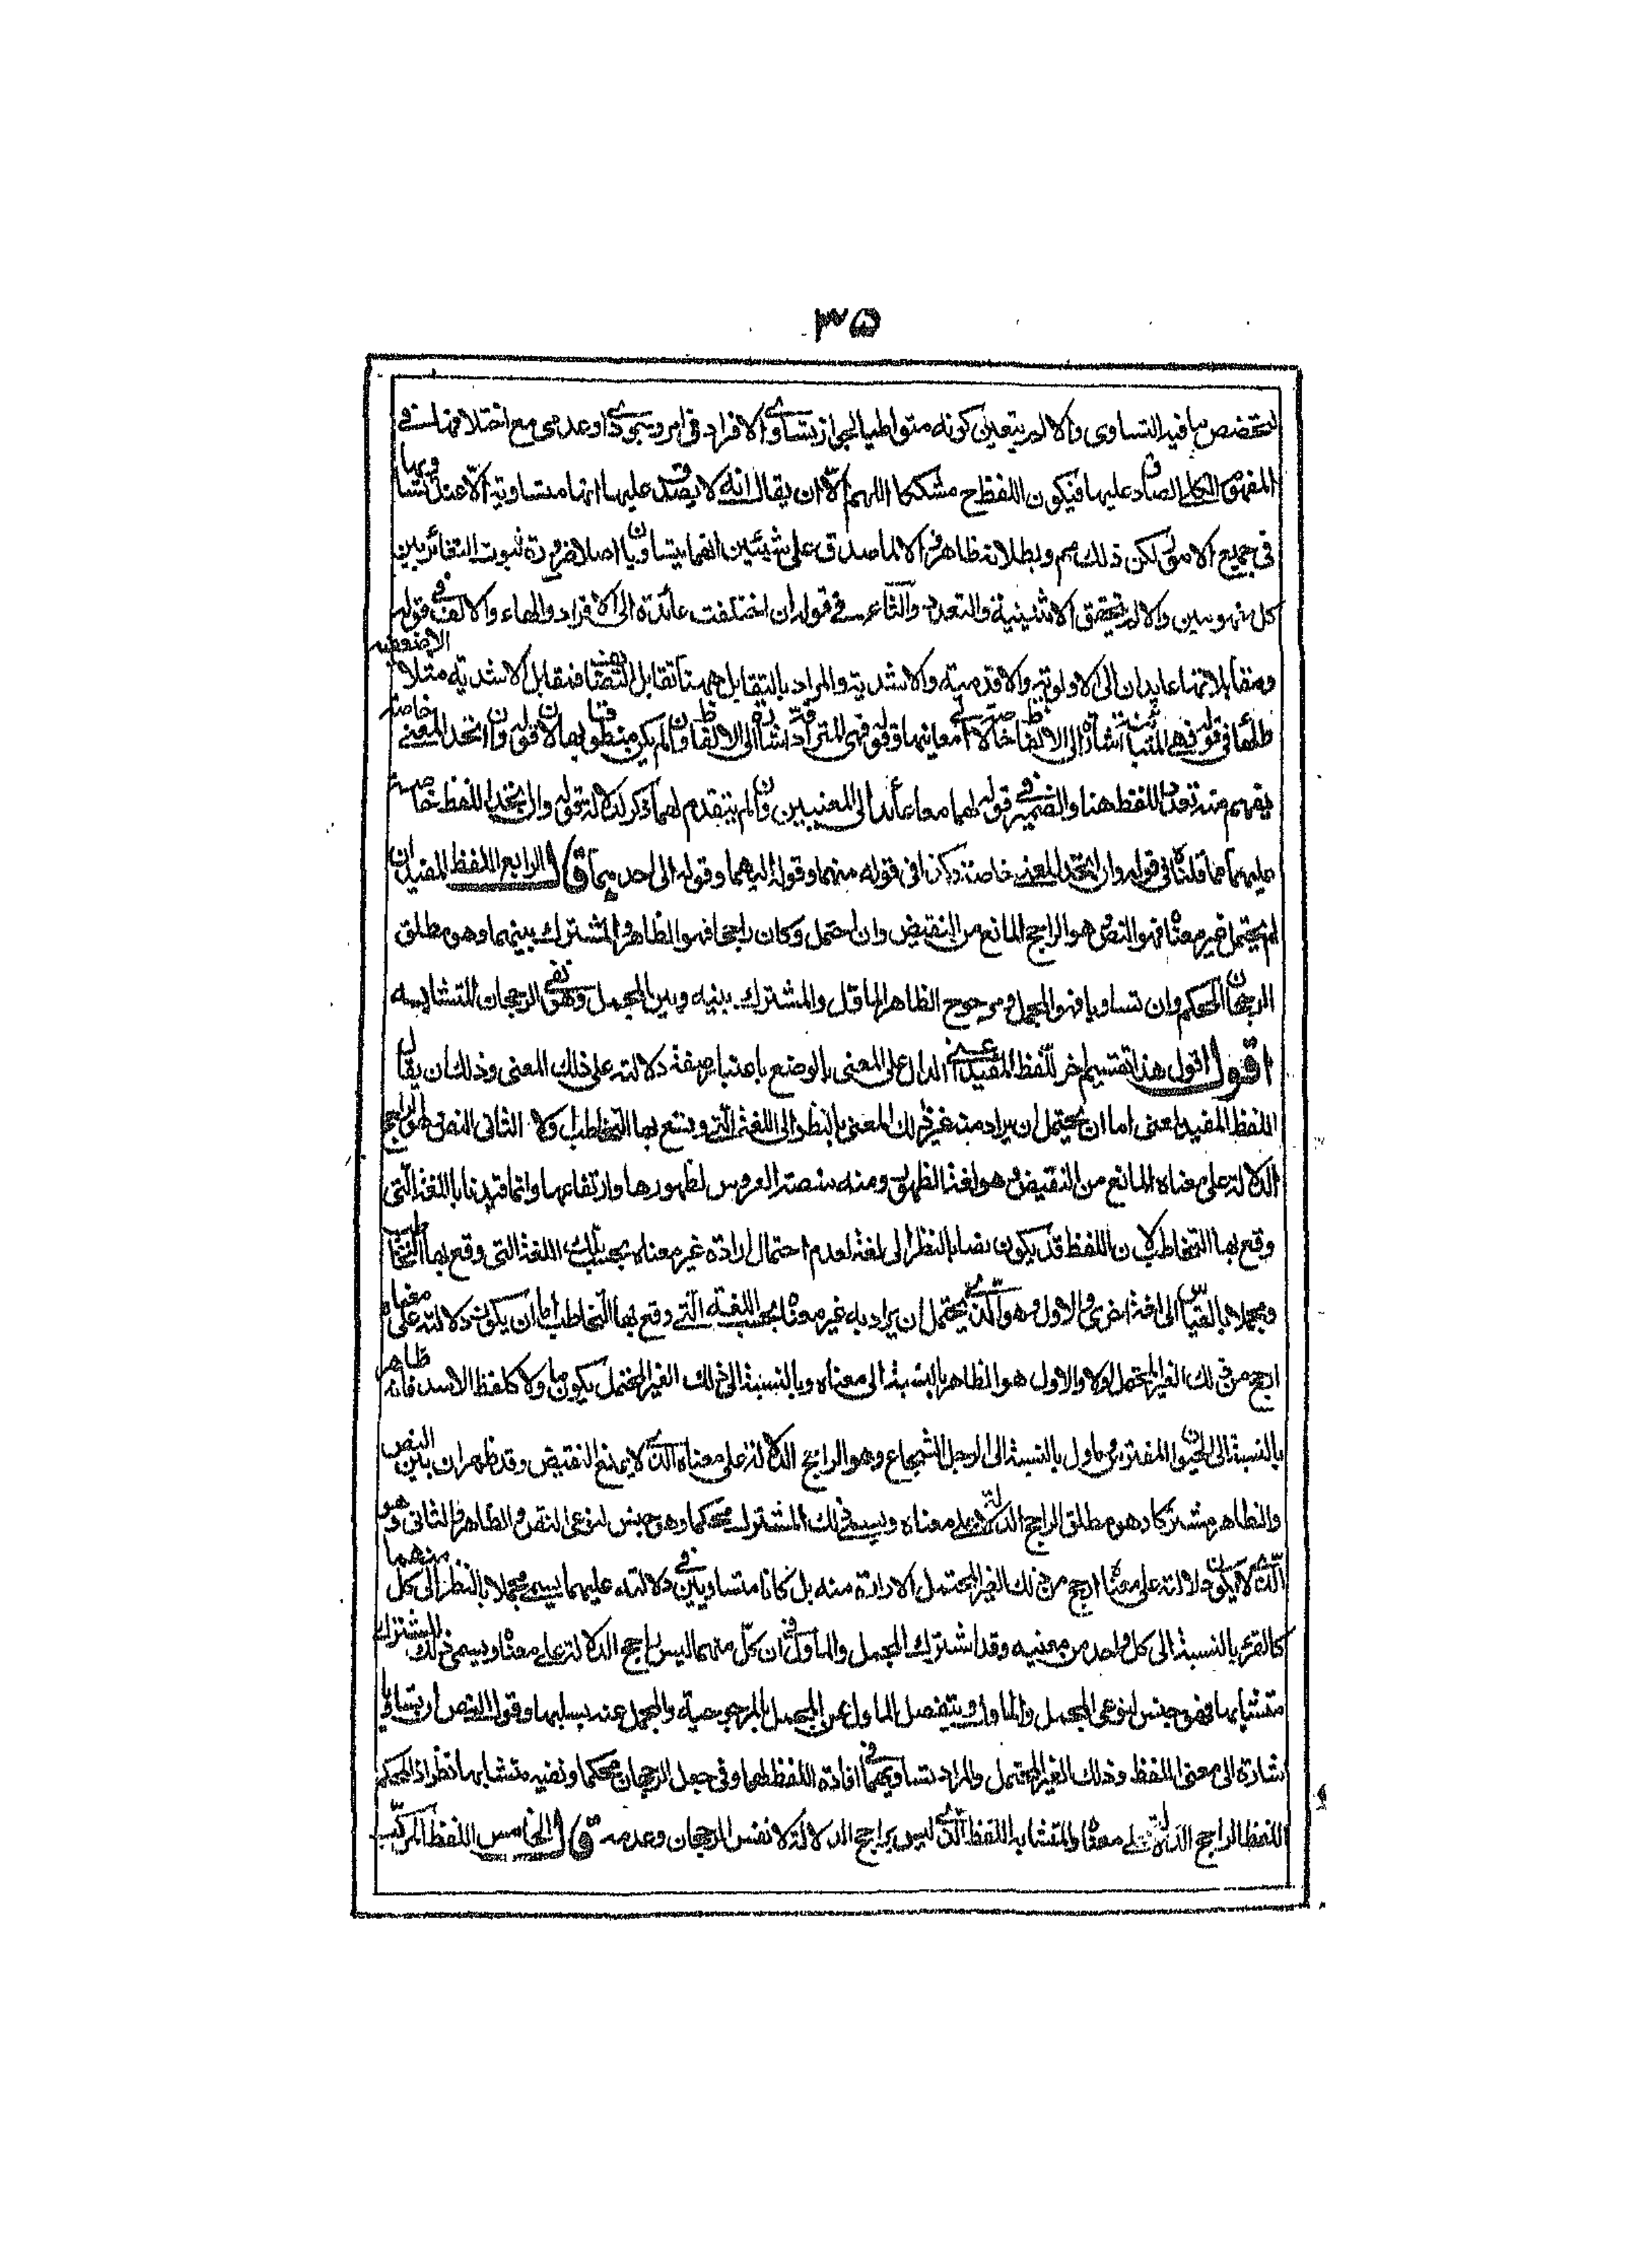 ٣۵
لتخصص ما فيه التساوى والا لم يتعين كونه متواطيا لجواز تساوى الافراد فى امر وجودى او عدمى مع اختلافها فى
المفهوم الكلى الصادق عليها فيكون اللفظ ح مشككا اللهم الا ان يقال انه لا يصدق عليها انها متساوية الا عند تساويها
فى جميع الامور لكن ذلك مم وبطلانه ظاهر والا لما صدق على شيئين انهما يتساويان اصلا ضرورة ثبوت التغاير بين
كل مفهومين والا لم يتحقق الاثنينية والتعدد والتاء فى قوله ان اختلفت عائدة الى الافراد والهاء والالف فى قوله
ومقابلاتها عايدان الى الاولوية والاقدمية والاشدية والمراد بالتقابل ههنا تقابل التضايف فمقابل الاشدية مثلا الاضعفية
فى قوله فهى المتباينة اشارة الى الالفاظ خاصة لا معانيها وقوله فهى المترادفة اشارة الى الالفاظ وان لم يكن منطوقا بها لان قوله وان اتحد المعنى خاصة
يفهم منه تعدد اللفظ هنا والضمير فى قوله لهما معا عائد الى المعنيين وان لم يتقدم لهما ذكر لدلالة قوله وان اتحد اللفظ خاصة
عليهما كما قلناه فى قوله وان اتحد المعنى خاصة وكذا فى قوله منهما وقوله اليهما وقوله الى احدهما قال الرابع اللفظ المفيد ان
لم يحتمل غير معناه فهو النص وهو الراجح المانع من النقيض وان احتمل وكان راجحا فهو الظاهر والمشترك بينهما وهو مطلق
الرجحان المحكم وان تساويا فهو المجمل ومرجوح الظاهر الماول والمشترك بينه وبين المجمل وهو نفى الرجحان المتشابه
اقول اقول هذا تقسيم اخر للفظ المفيد اعنى الدال على المعنى بالوضع باعتبار صفة دلالته على ذلك المعنى وذلك ان يقال
اللفظ المفيد لمعنى اما ان يحتمل ان يراد منه غير ذلك المعنى بالنظر الى اللغة التى وقع بها التخاطب او لا الثانى النص وهو الراجح
الدلالة على معناه المانع من النقيض وهو لغة الظهور ومنه منصة العروس لظهورها وارتفاعها وانما قيدنا باللغة التى
وقع بها التخاطب لان اللفظ قد يكون نصا بالنظر الى لغة لعدم احتمال ارادة غير معناه بحسب تلك اللغة التى وقع بها التخاطب
ومجملا بالقياس الى لغة اخرى والاول وهو الذى يحتمل ان يراد به غير معناه بحسب اللغة التى وقع بها التخاطب اما ان يكون دلالته على معناه
ارجح من ذلك الغير المحتمل اولا والاول هو الظاهر بالنسبة الى معناه وبالنسبة الى ذلك الغير المحتمل يكون ماولا كلفظ الاسد فانه ظاهر
بالنسبة الى الحيوان المفترس وماول بالنسبة الى الرجل الشجاع وهو الراجح الدلالة على معناه الذى لا يمنع النقيض وقد ظهر ان بين النص
والظاهر مشتركا وهو مطلق الراجح الدلالة على معناه ويسمى ذلك المشترك محكما وهو جنس لنوعى النص والظاهر والثانى وهو
الذى لا يكون دلالته على معناه ارجح من ذلك الغير المحتمل الارادة منه بل كانا متساويين فى دلالته عليهما يسمى مجملا بالنظر الى كل منهما
كالقرء بالنسبة الى كل واحد من معنييه وقد اشترك المجمل والماول فى ان كل منهما ليس راجح الدلالة على معناه ويسمى ذلك المشترك
متشابها فهو جنس لنوعى المجمل والماول وينفصل الماول عن المجمل بالمرجوحية والمجمل عنه بسلبها وقول المص ان تساويا
اشارة الى معنى اللفظ وذلك الغير المحتمل والمراد تساويهما فى افادة اللفظ لهما وفى جعل الرجحان محكما ونفيه متشابها نظر اذ المحكم
اللفظ الراجح الدلالة على معناه والمتشابه اللفظ الذى ليس براجح الدلالة لا نفس الرجحان وعدمه قال الخامس اللفظ المركب